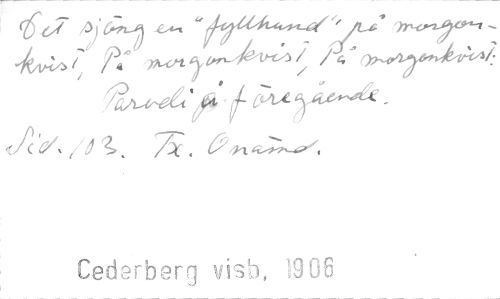 Det sjöng en "fyllhund" på morgon-
kvist, På morgonkvist, På morgonkvist.
Parodi å föregående.
Sid. 103. Tx. Onämd.
Cederberg visb, 1906